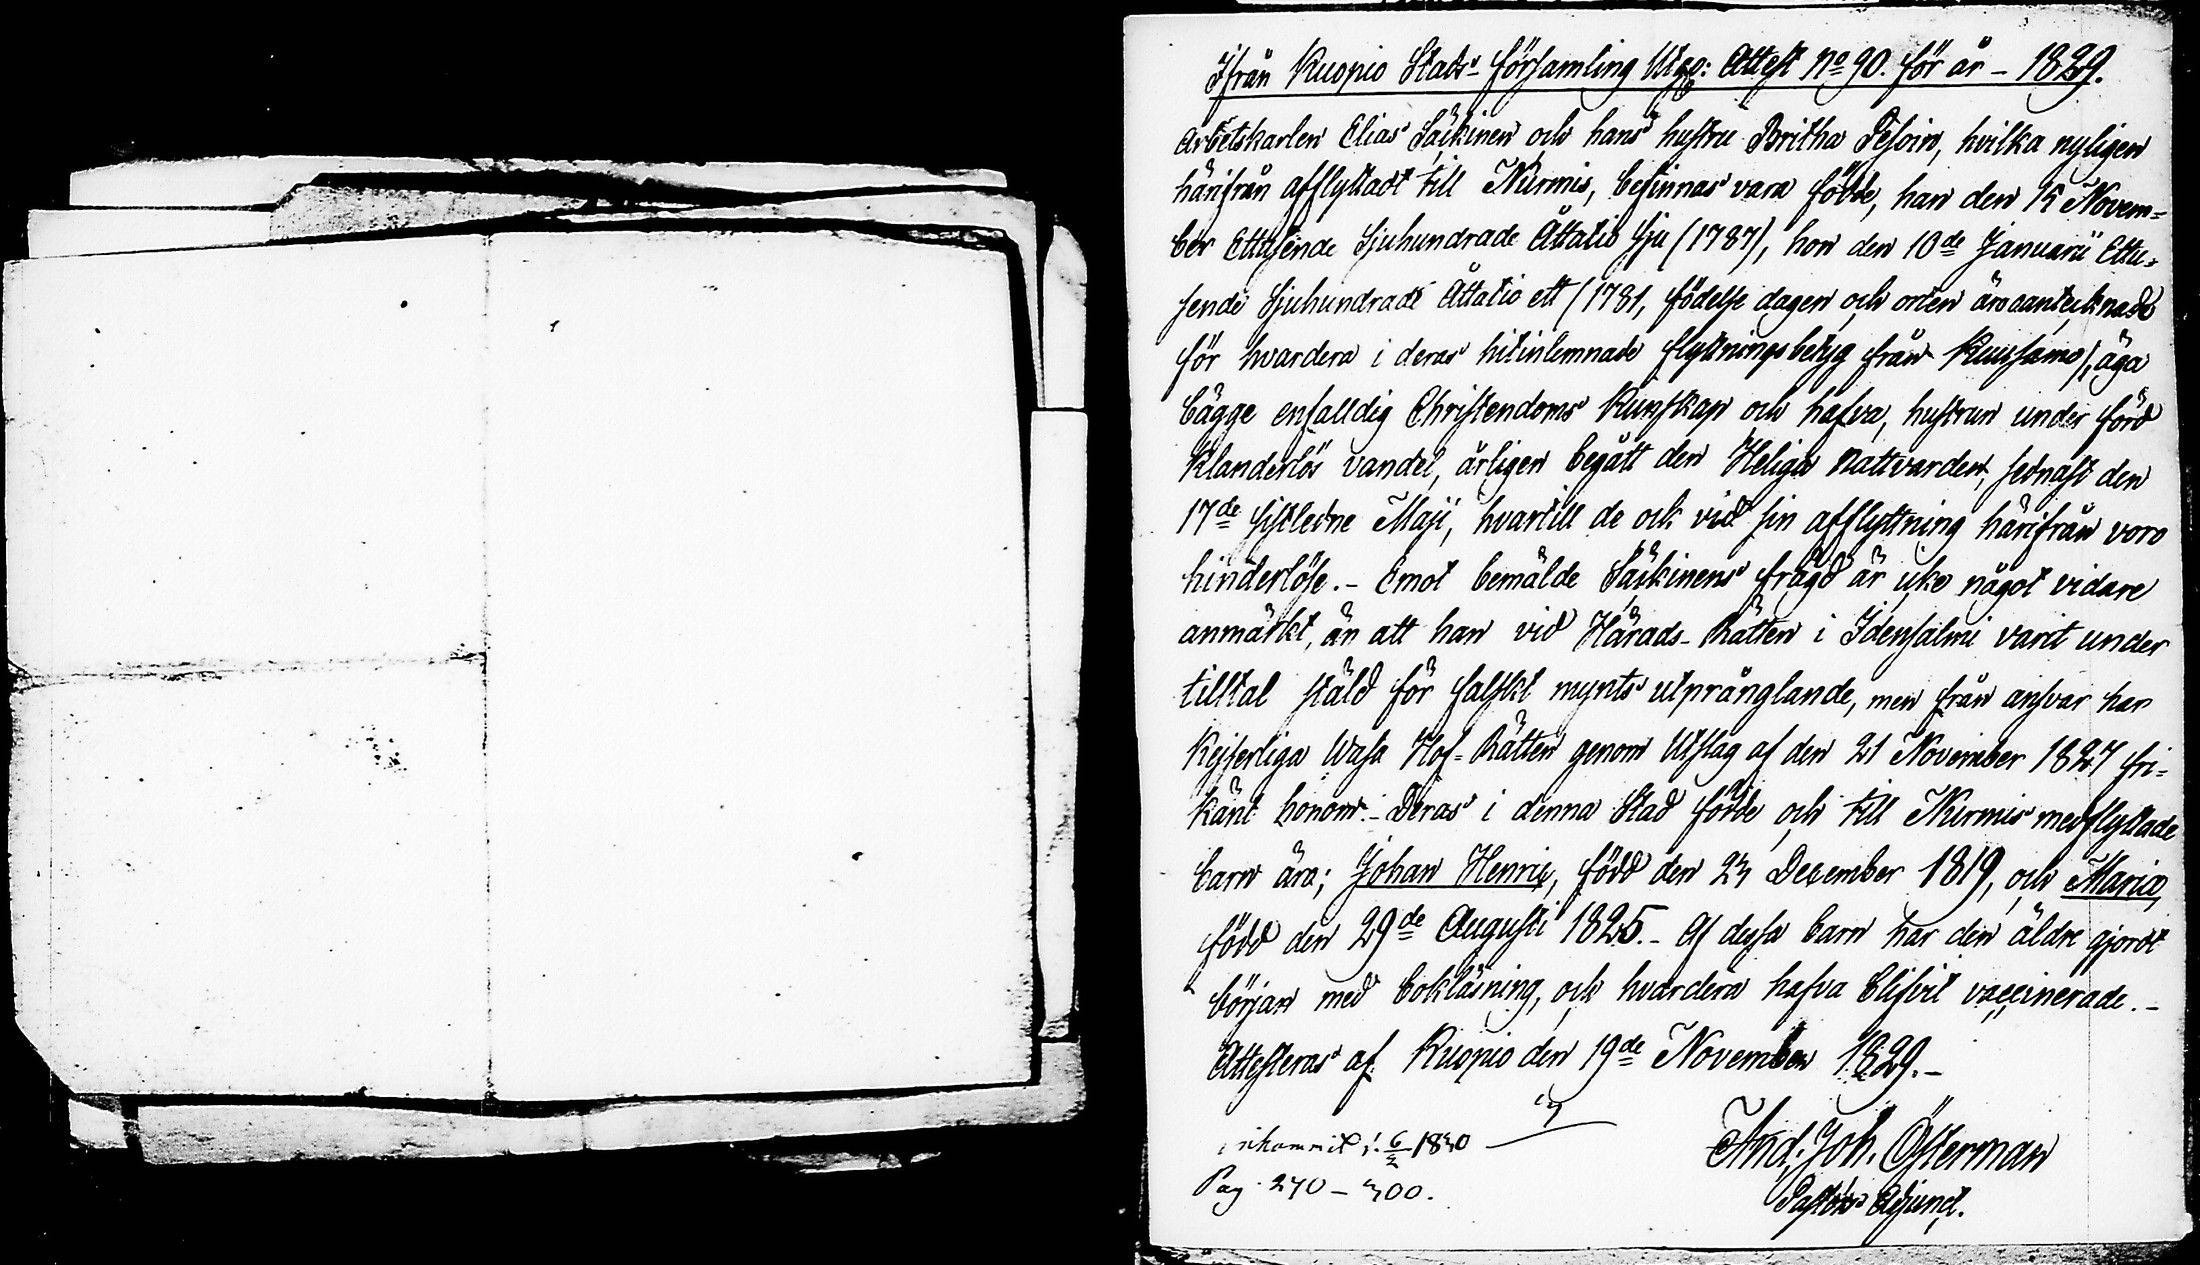 Ifrån Kuopio Stads-församling Utgo: Attest No 90. för år - 1829.
Arbetskarlen Elias Säikinen och hans hustru Britha Pesoin, hvilka nyligen
härifrån afflyttadt till Nurmis, befinnas vara födde, han den 15 Novem-
ber Ettusende Sjuhundrade Åttatio sju (1787), hon den 10de Januarii Ettu-
sende Sjuhundrade Åttatio ett (1781, födelse dagen och orten äro antecknade
för hvardera i deras hitinlemnade flyttningsbetyg från Kuusamo), äga
bägge enfalldig Christendoms kunskap och hafva, hustrun under förd
klanderlös vandel, årligen begått den Heliga nattvarden, sednast den
17de sistledne Maji, hvartill de ock vid sin afflyttning härifrån voro
hinderlöse.- Emot bemälde Säikinens frägd är icke något vidare
anmärkt, än att han vid Härads-Rätten i Idensalmi varit under
tilltal stäld för falskt mynts utprånglande, men från ansvar har
Kejserliga Wasa Hof-Rätten genom Utslag af den 21 November 1827 fri-
känt honom.- Deras i denna Stad födde och till Nurmis medflyttade
barn äro; Johan Henric, född den 23 December 1819, och Maria,
född den 29de Augusti 1825.- Af dessa barn har den äldre gjordt
början med bokläsning, och hvardera hafva blifvit vaccinerade.-
Attesteras af Kuopio den 19de November 1829.-
inkommit d. 6/2 1830
And. Joh. Österman
Pag. 270 - 300.
Pastors Adjunct.